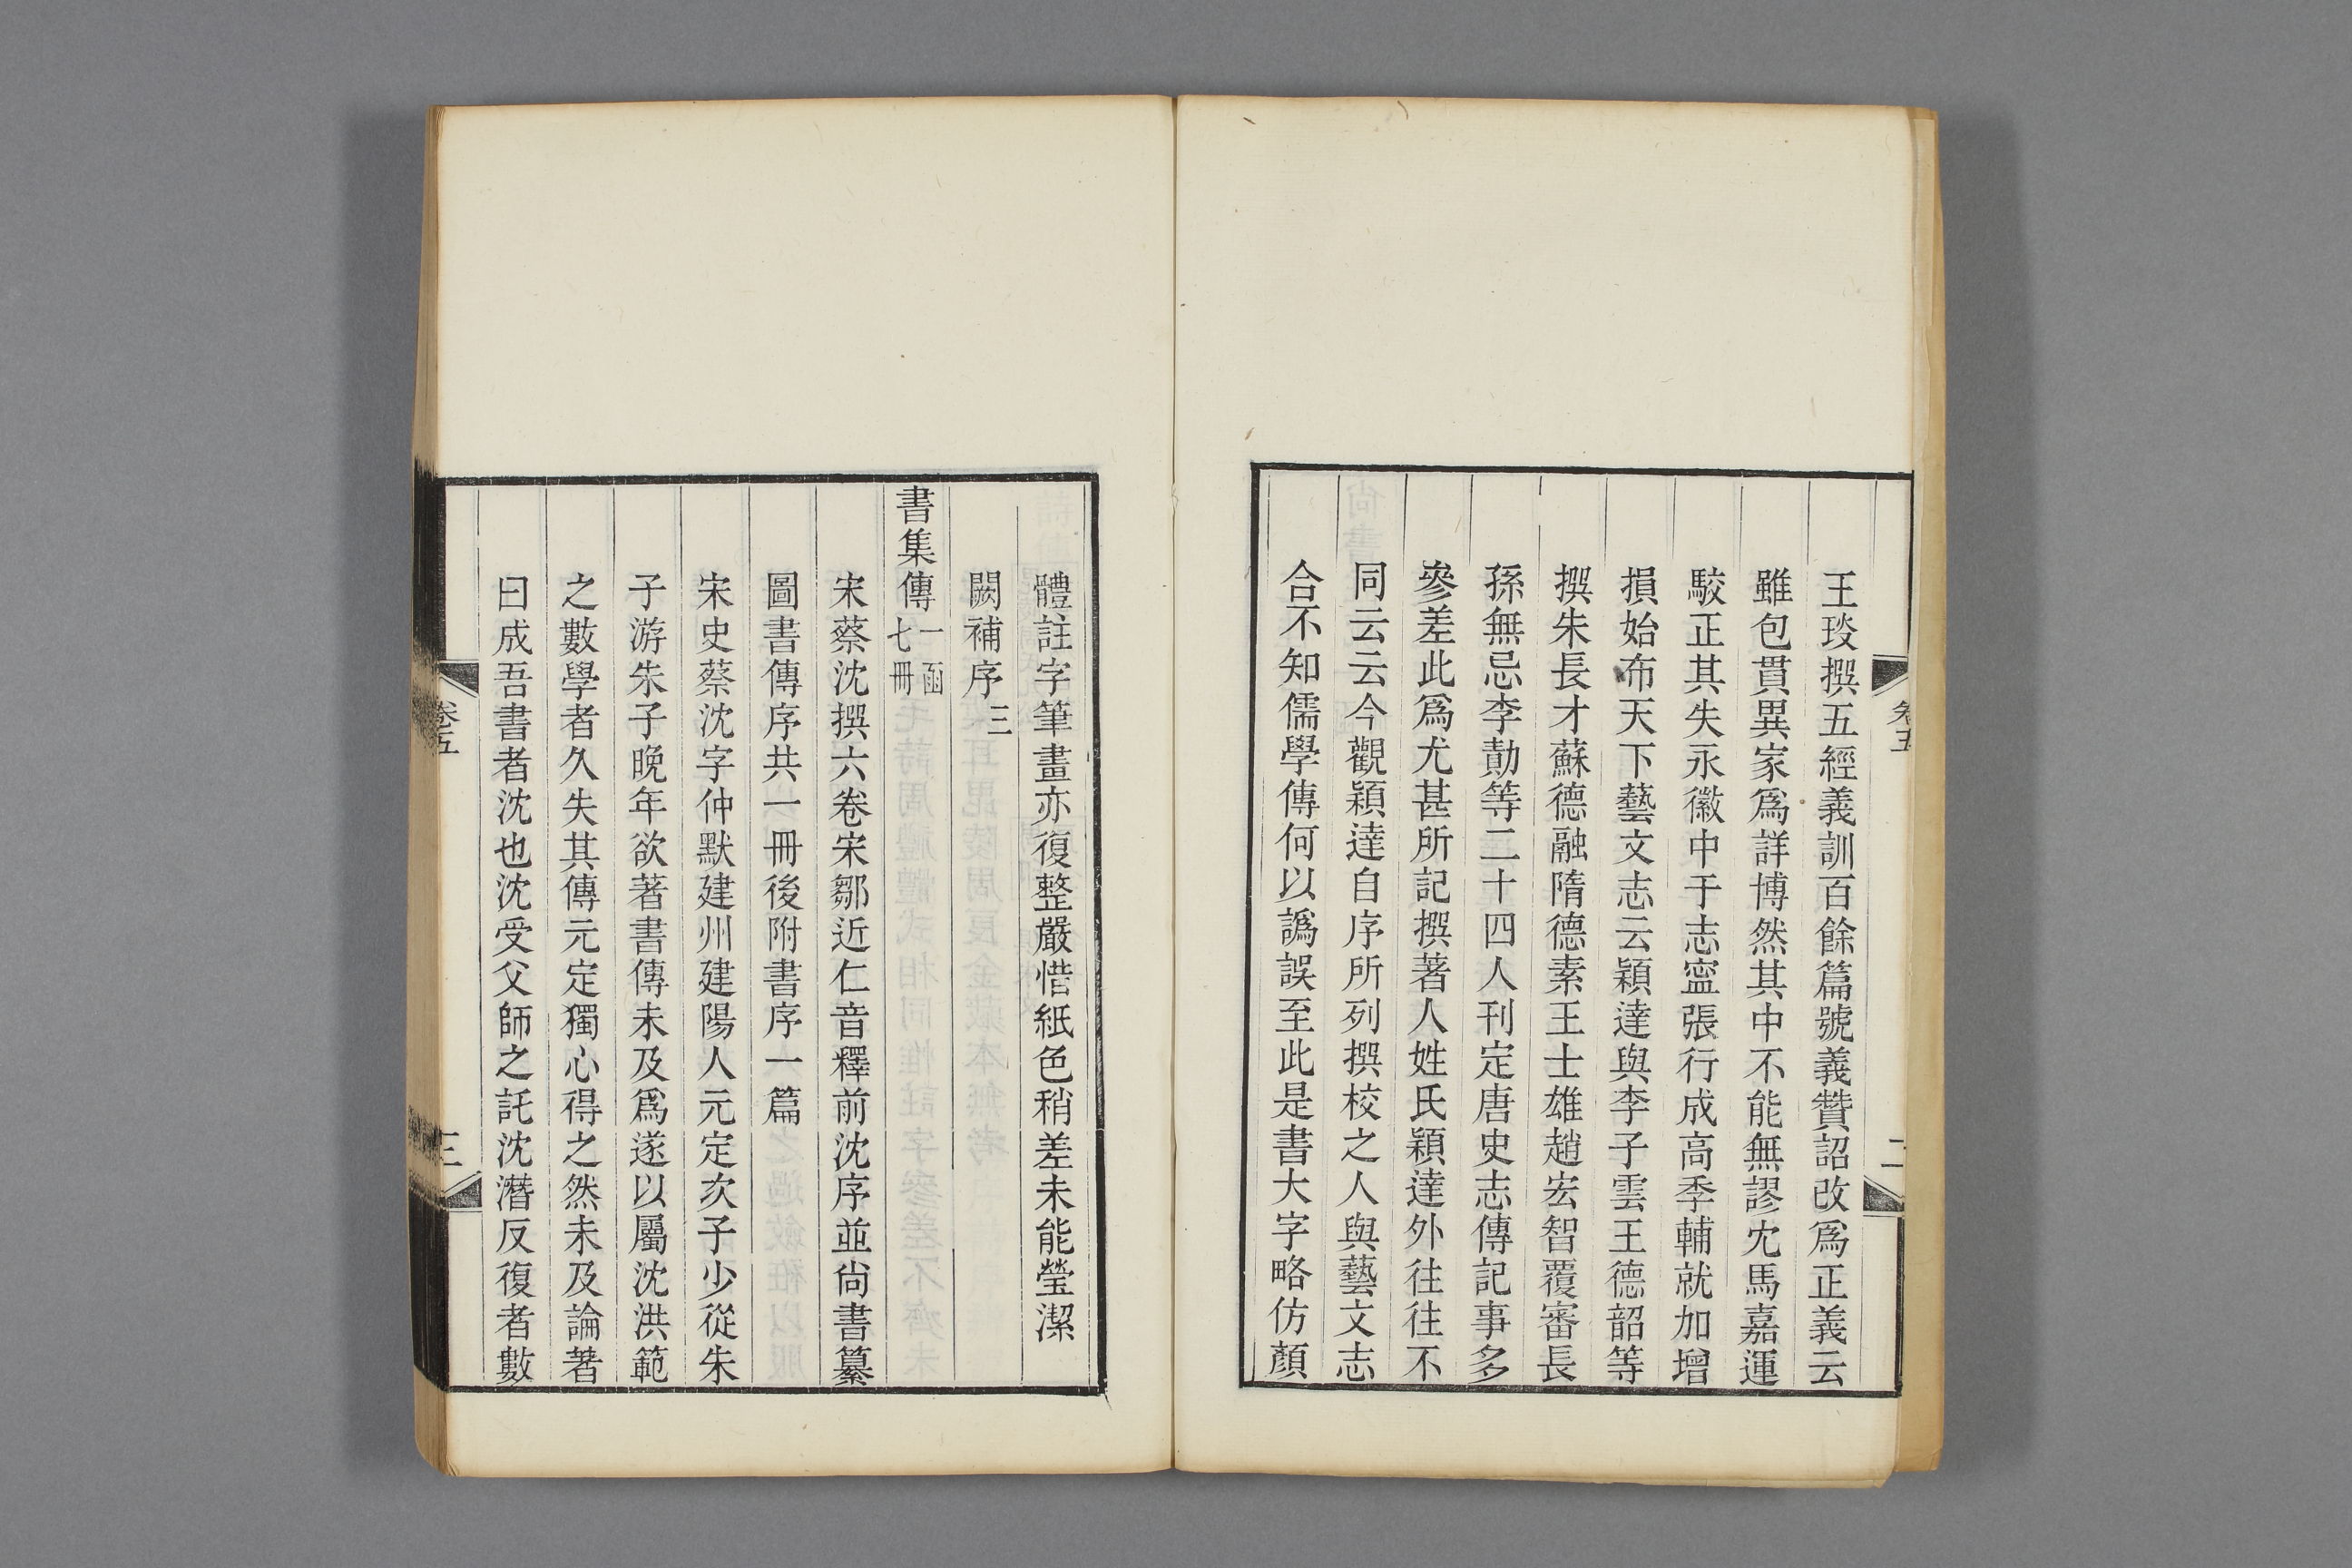 王琰撰五經義訓百餘篇號義贊詔改爲正義云
雖包貫異家爲詳博然其中不能無謬宂馬嘉運
駮正其失永徽中于志寧張行成高季輔就加增
損始布天下藝文志云穎達與李子雲王德韶等
撰朱長才蘇德融隋德素王士雄趙宏智覆審長
孫無忌李勣等二十四人刊定唐史志傳記事多
參差此爲尤甚所記撰著人姓氏穎達外往往不
同云云今觀穎達自序所列撰校之人與藝文志
合不知儒學傳何以譌誤至此是書大字略仿顏
卷五
二
體註字筆畫亦復整嚴惜紙色稍差未能瑩潔
闕補序三
書集傳一函七冊
宋蔡沈撰六卷宋鄒近仁音釋前沈序並尙書纂
圖書傳序共一冊後附書序一篇
宋史蔡沈字仲默建州建陽人元定次子少從朱
子游朱子晚年欲著書傳未及爲遂以屬沈洪範
之數學者久失其傳元定獨心得之然未及論著
曰成吾書者沈也沈受父師之託沈潛反復者數
卷五
三